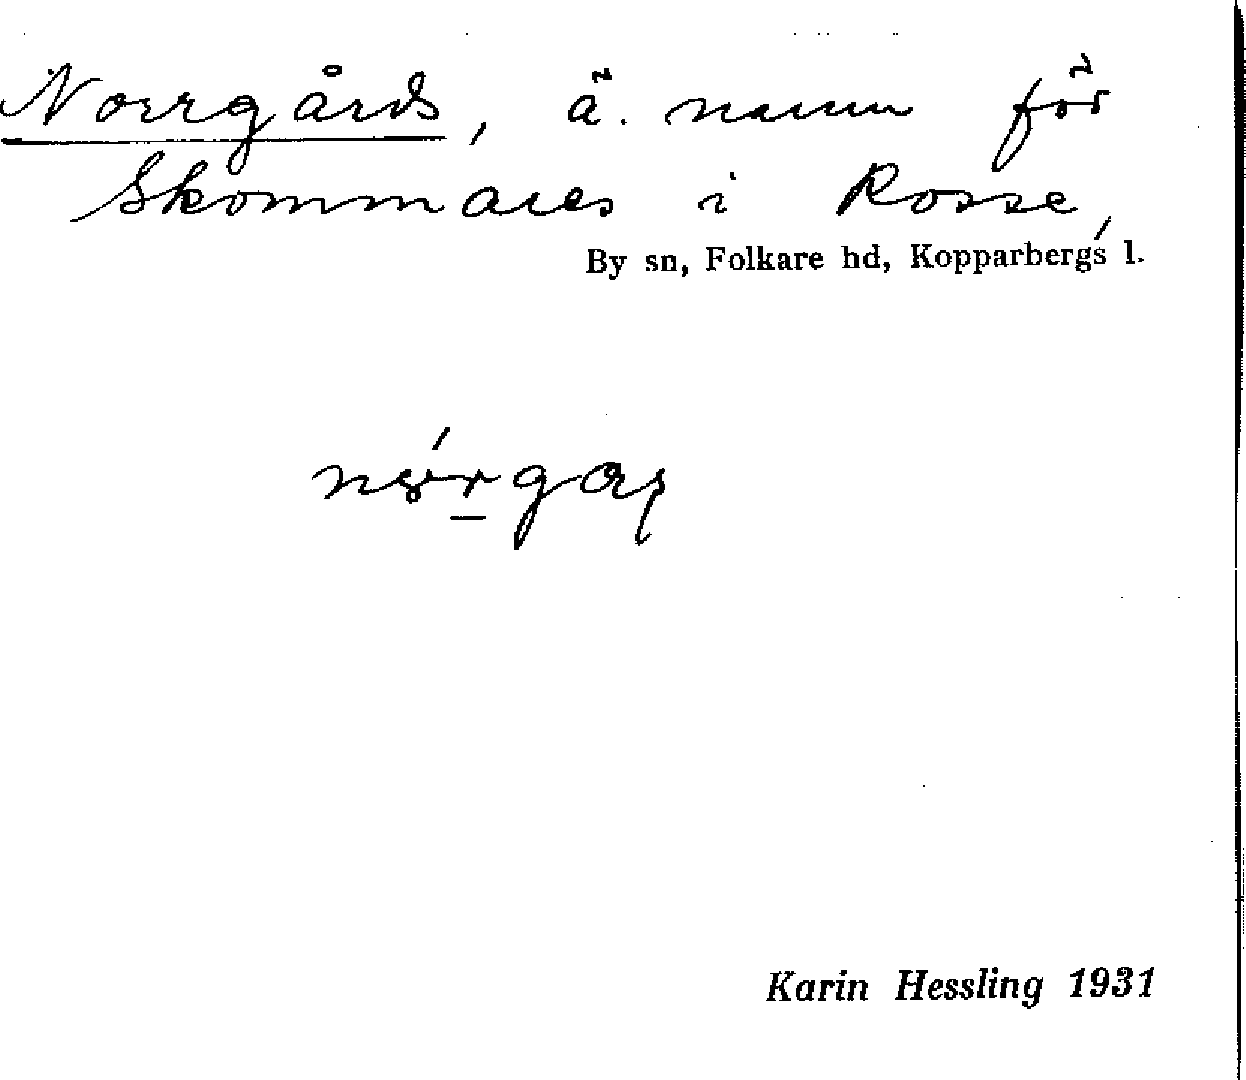 Norrgårds, ä. namn för
Skommares i Rosse,
By sn, Folkare hd, Kopparbergs l.
Karin Hessling 1931